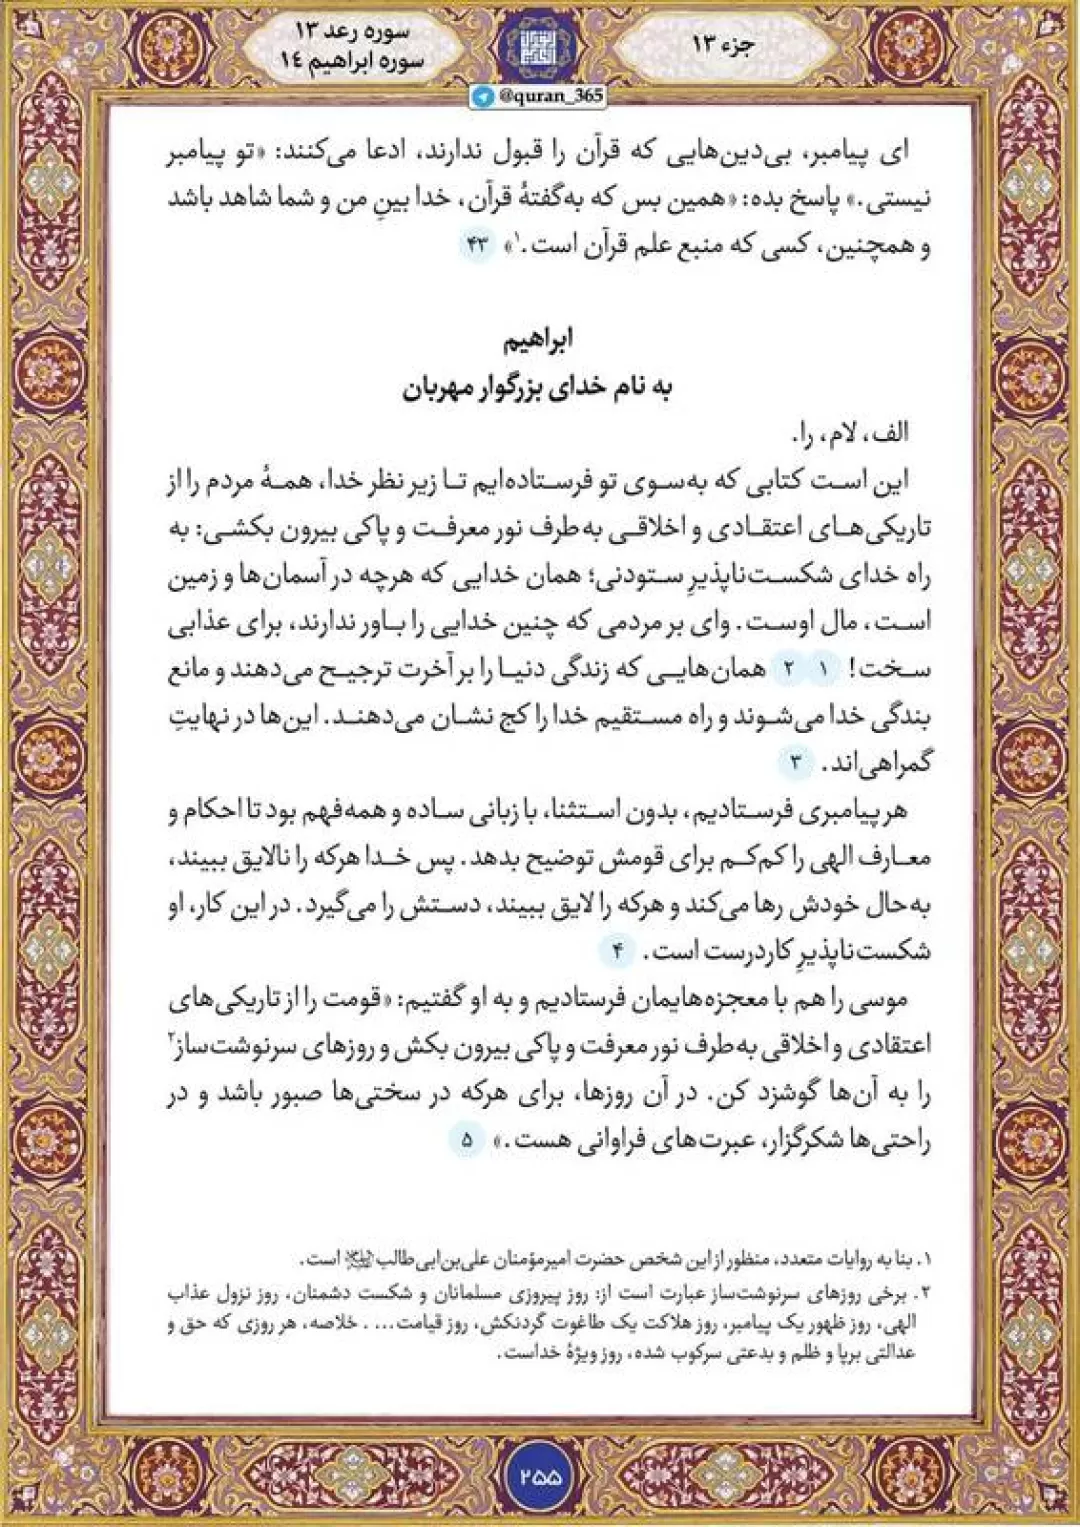 جزء ۱۳
سوره رعد ۱۳
سوره ابراهیم ۱۴
@quran_365
ای پیامبر، بی‌دین‌هایی که قرآن را قبول ندارند، ادعا می‌کنند: «تو پیامبر
نیستی.» پاسخ بده: «همین بس که به‌گفتهٔ قرآن، خدا بینِ من و شما شاهد باشد
و همچنین، کسی که منبع علم قرآن است.۱» ۴۳
ابراهیم
به نام خدای بزرگوار مهربان
الف، لام، را.
این است کتابی که به‌سوی تو فرستاده‌ایم تا زیر نظر خدا، همهٔ مردم را از
تاریکی‌های اعتقادی و اخلاقی به‌طرف نور معرفت و پاکی بیرون بکشی: به
راه خدای شکست‌ناپذیرِ ستودنی؛ همان خدایی که هرچه در آسمان‌ها و زمین
است، مال اوست. وای بر مردمی که چنین خدایی را باور ندارند، برای عذابی
سخت! ۱ ۲ همان‌هایی که زندگی دنیا را بر آخرت ترجیح می‌دهند و مانع
بندگی خدا می‌شوند و راه مستقیم خدا را کج نشان می‌دهند. این‌ها در نهایتِ
گمراهی‌اند. ۳
هر پیامبری فرستادیم، بدون استثنا، با زبانی ساده و همه‌فهم بود تا احکام و
معارف الهی را کم‌کم برای قومش توضیح بدهد. پس خدا هرکه را نالایق ببیند،
به‌حال خودش رها می‌کند و هرکه را لایق ببیند، دستش را می‌گیرد. در این کار، او
شکست‌ناپذیرِ کاردرست است. ۴
موسی را هم با معجزه‌هایمان فرستادیم و به او گفتیم: «قومت را از تاریکی‌های
اعتقادی و اخلاقی به‌طرف نور معرفت و پاکی بیرون بکش و روزهای سرنوشت‌ساز۲
را به آن‌ها گوشزد کن. در آن روزها، برای هرکه در سختی‌ها صبور باشد و در
راحتی‌ها شکرگزار، عبرت‌های فراوانی هست.» ۵
۱. بنا به روایات متعدد، منظور از این شخص حضرت امیرمؤمنان علی‌بن‌ابی‌طالب است.
۲. برخی روزهای سرنوشت‌ساز عبارت است از: روز پیروزی مسلمانان و شکست دشمنان، روز نزول عذاب
الهی، روز ظهور یک پیامبر، روز هلاکت یک طاغوت گردنکش، روز قیامت... . خلاصه، هر روزی که حق و
عدالتی برپا و ظلم و بدعتی سرکوب شده، روز ویژهٔ خداست.
۲۵۵